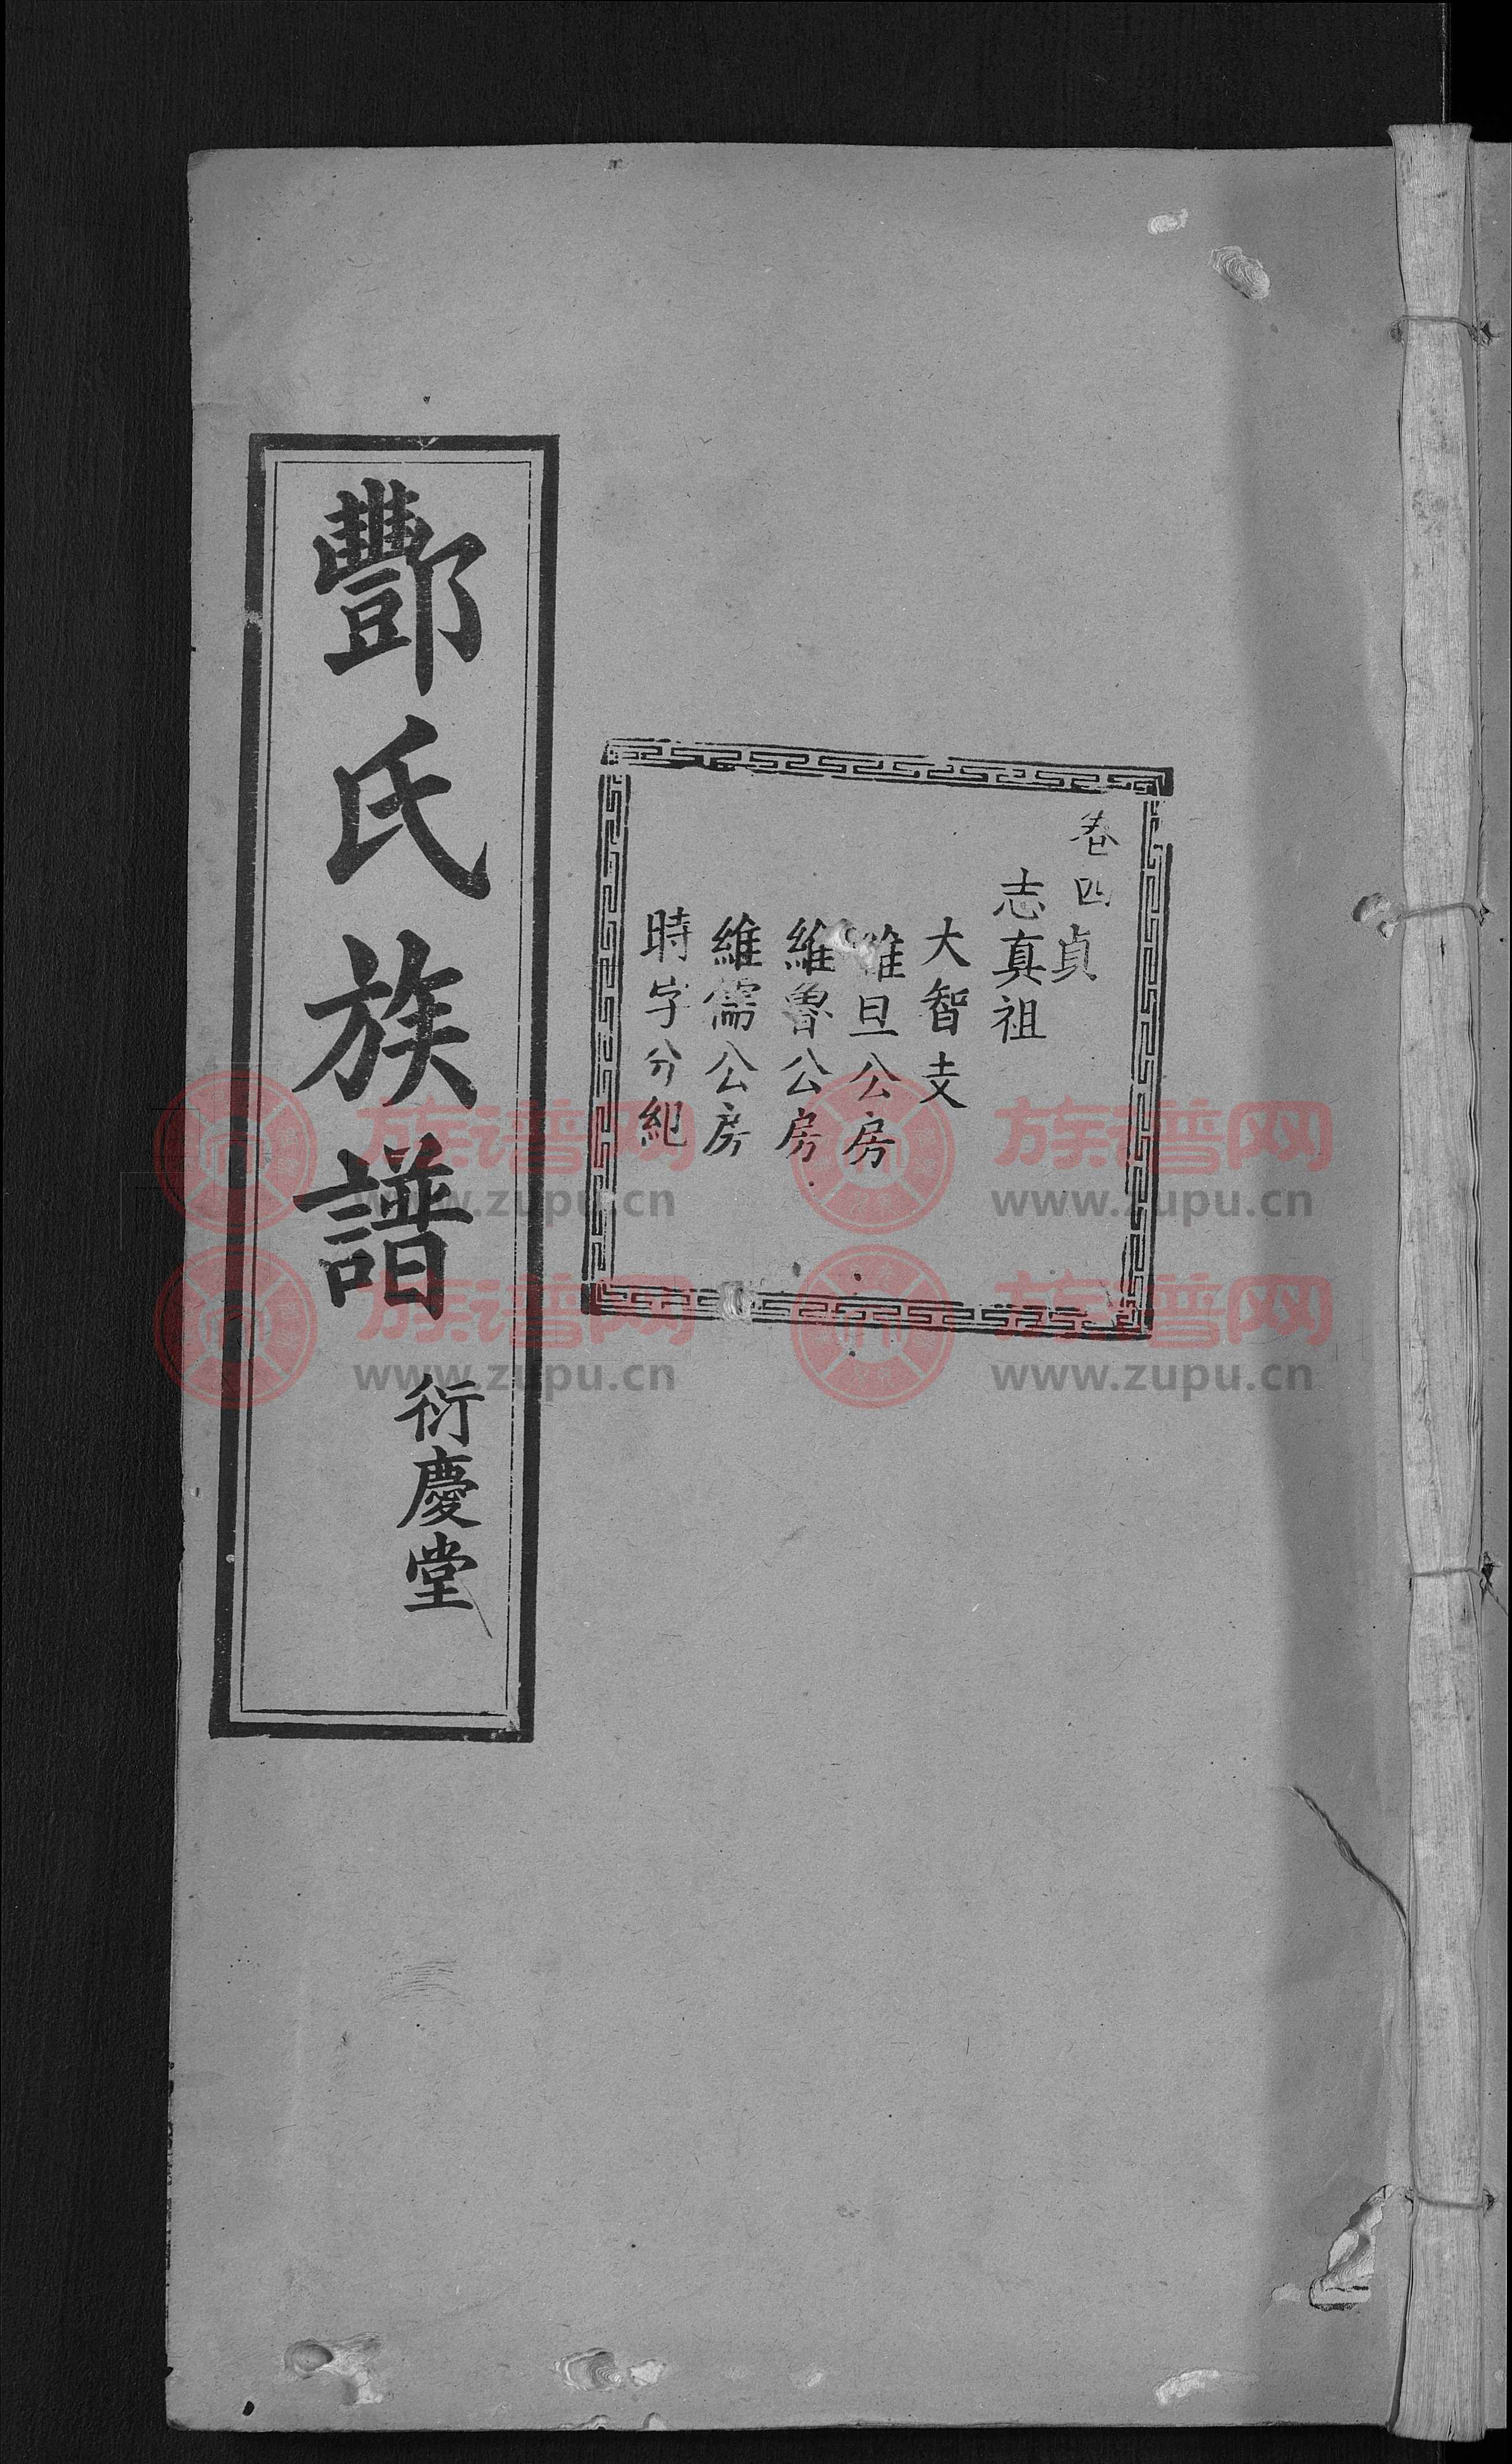 卷四貞
志真祖
大智支
維旦公房
維魯公房
維儒公房
時字分紀
酆氏族譜
衍慶堂
族谱网
www.zupu.cn
族谱网
www.zupu.cn
族谱网
www.zupu.cn
族谱网
www.zupu.cn